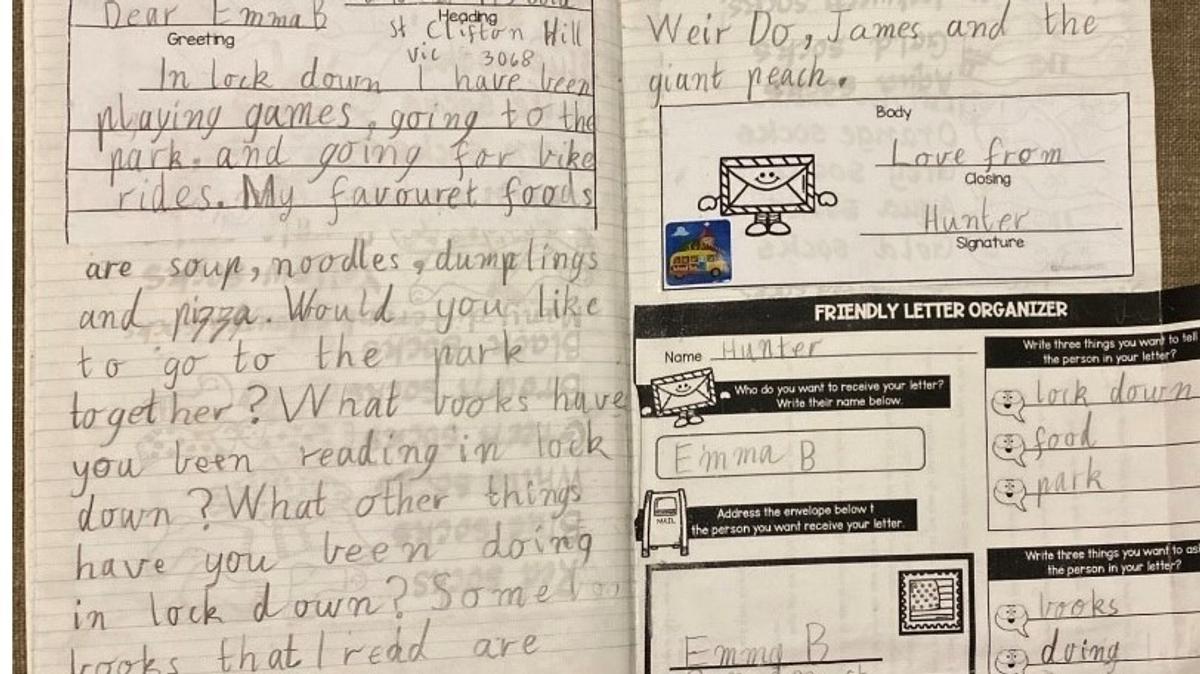 Dear Emma B
Heading
Greeting
St Clifton Hill
Vic 3068
In lock down I have been
playing games, going to the
park. and going for bike
rides. My favouret foods
are soup, noodles, dumplings
and pizza. Would you like
to go to the park
together? What books have
you been reading in lock
down? What other things
have you been doing
in lock down? Some
books that I read are
Weir Do, James and the
giant peach.
Body
Love from
Closing
Hunter
Signature
FRIENDLY LETTER ORGANIZER
Name Hunter
Who do you want to receive your letter?
Write their name below.
Emma B
Address the envelope below t
the person you want receive your letter.
MAIL
Emma B
Write three things you want to tell
the person in your letter?
lock down
food
park
Write three things you want to as
the person in your letter?
books
doing